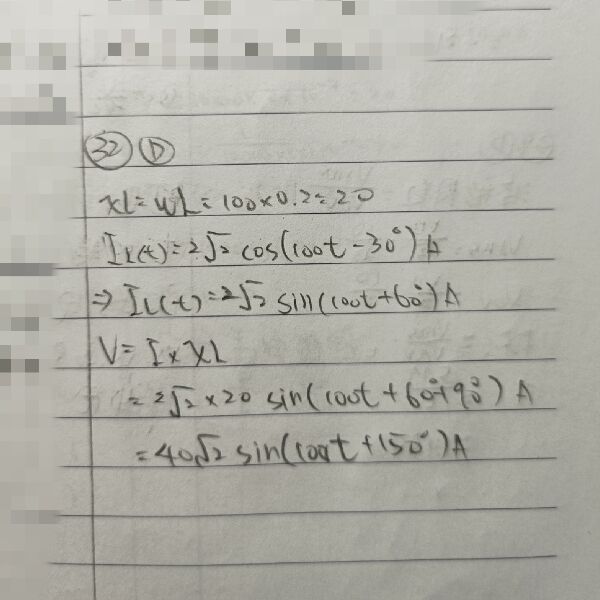 ㉜ Ⓓ
XL=ωL=100×0.2=20
IL(t)=2√2 cos(100t-30°)A
⇒ IL(t)=2√2 sin(100t+60°)A
V=I×XL
=2√2×20 sin(100t+60°+90°)A
=40√2 sin(100t+150°)A